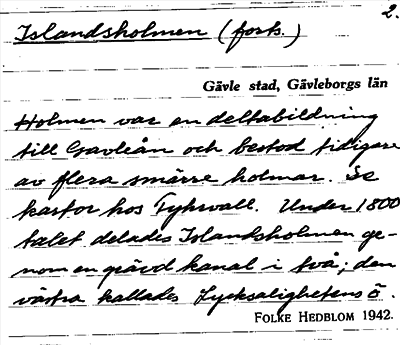 2.
Islandsholmen (forts.)
Gävle stad, Gävleborgs län
Holmen var en deltabildning
till Gavleån och bestod tidigare
av flera smärre holmar. Se
kartor hos Fyhrvall. Under 1800
talet delades Islandsholmen ge-
nom en grävd kanal i två; den
västra kallades Lycksalighetens ö.
FOLKE HEDBLOM 1942.